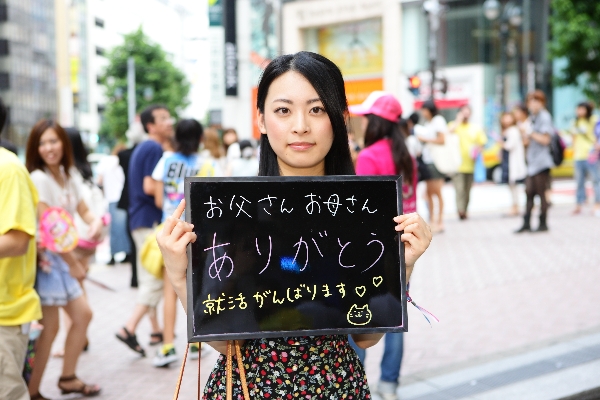 お父さん お母さん
ありがとう
就活がんばります♡♡